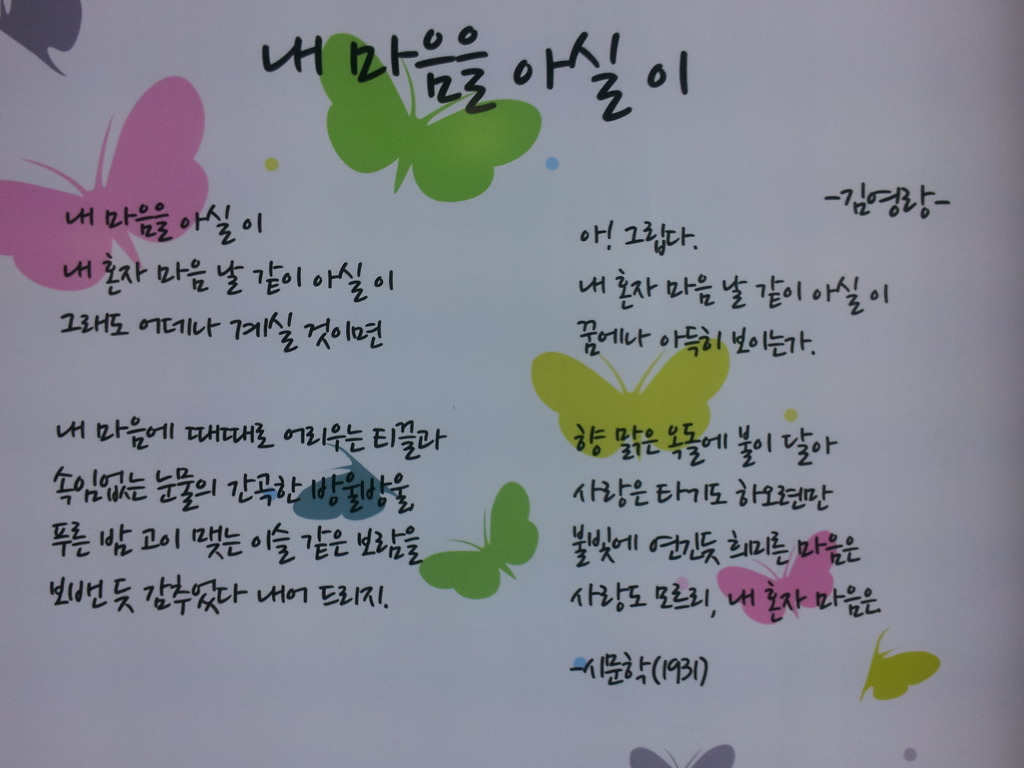 내 마음을 아실 이
-김영랑-
내 마음을 아실 이
내 혼자 마음 날 같이 아실 이
그래도 어데나 계실 것이면
내 마음에 때때로 어리우는 티끌과
속임없는 눈물의 간곡한 방울방울,
푸른 밤 고이 맺는 이슬 같은 보람을
보밴 듯 감추었다 내어 드리지.
아! 그립다.
내 혼자 마음 날 같이 아실 이
꿈에나 아득히 보이는가.
향 맑은 옥돌에 불이 달아
사랑은 타기도 하오련만
불빛에 연긴듯 희미론 마음은
사랑도 모르리, 내 혼자 마음은
-시문학(1931)